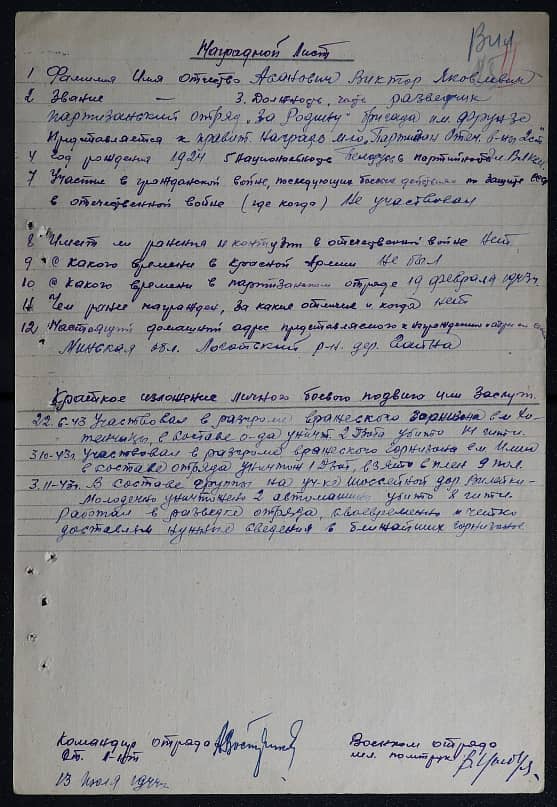 Вил
Наградной Лист
1 Фамилия Имя отчество Асанович Виктор Яковлевич
2 Звание — 3. Должность, часть разведчик
партизанский отряд "За Родину" бригада им. Фрунзе
Представляется к правит. Награде м-ло "Партизан Отеч. в-ны 2 ст"
4 год рождения 1924 5 Национальность Белорус 6 партийность
7 Участие в гражданской войне, последующих боевых действиях по защите СССР
в отечественной войне (где когда) Не участвовал
8 Имеет ли ранения и контузии в отечественной войне нет
9 С какого времени в Красной Армии Не был
10 С какого времени в партизанском отряде 19 февраля 1943 г.
11 Чем ранее награжден, за какие отличия и когда нет
12 Настоящий домашний адрес представляемого к награждению
Минская обл. р-н. дер.
Краткое изложение личного боевого подвига или Заслуг.
22.6.43 Участвовал в разгроме вражеского гарнизона в м. Хо-
тенчицы, в составе о-да уничт. 2 Дзота убито 14 гитл.
3.10.43 г. Участвовал в разгроме вражеского гарнизона в м. Илия
в составе отряда уничтож 1 Дзот, взято в плен 9 пол.
3.11-43 г. В составе группы на уч-ке шоссейной дор. Вилейка-
Молодечно уничтожено 2 автомашины убито 8 гитл.
Работал в разведке отряда, своевременно и четко
доставлял нужные сведения о ближайших гарнизонах
Командир отряда
Ст. л-нт
Военком отряда
мл. политрук
13 Июля 1944 г.